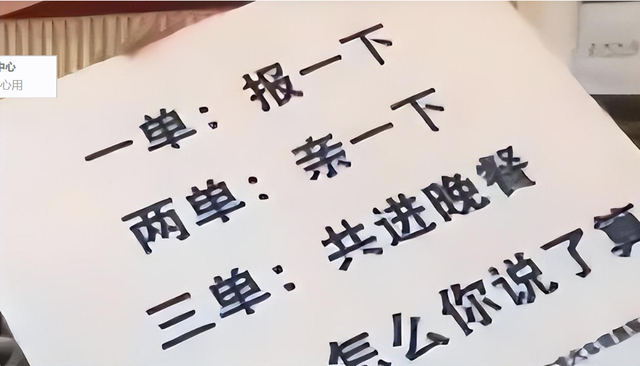 中心
心用
一单：报一下
两单：亲一下
三单：共进晚餐
怎么你说了